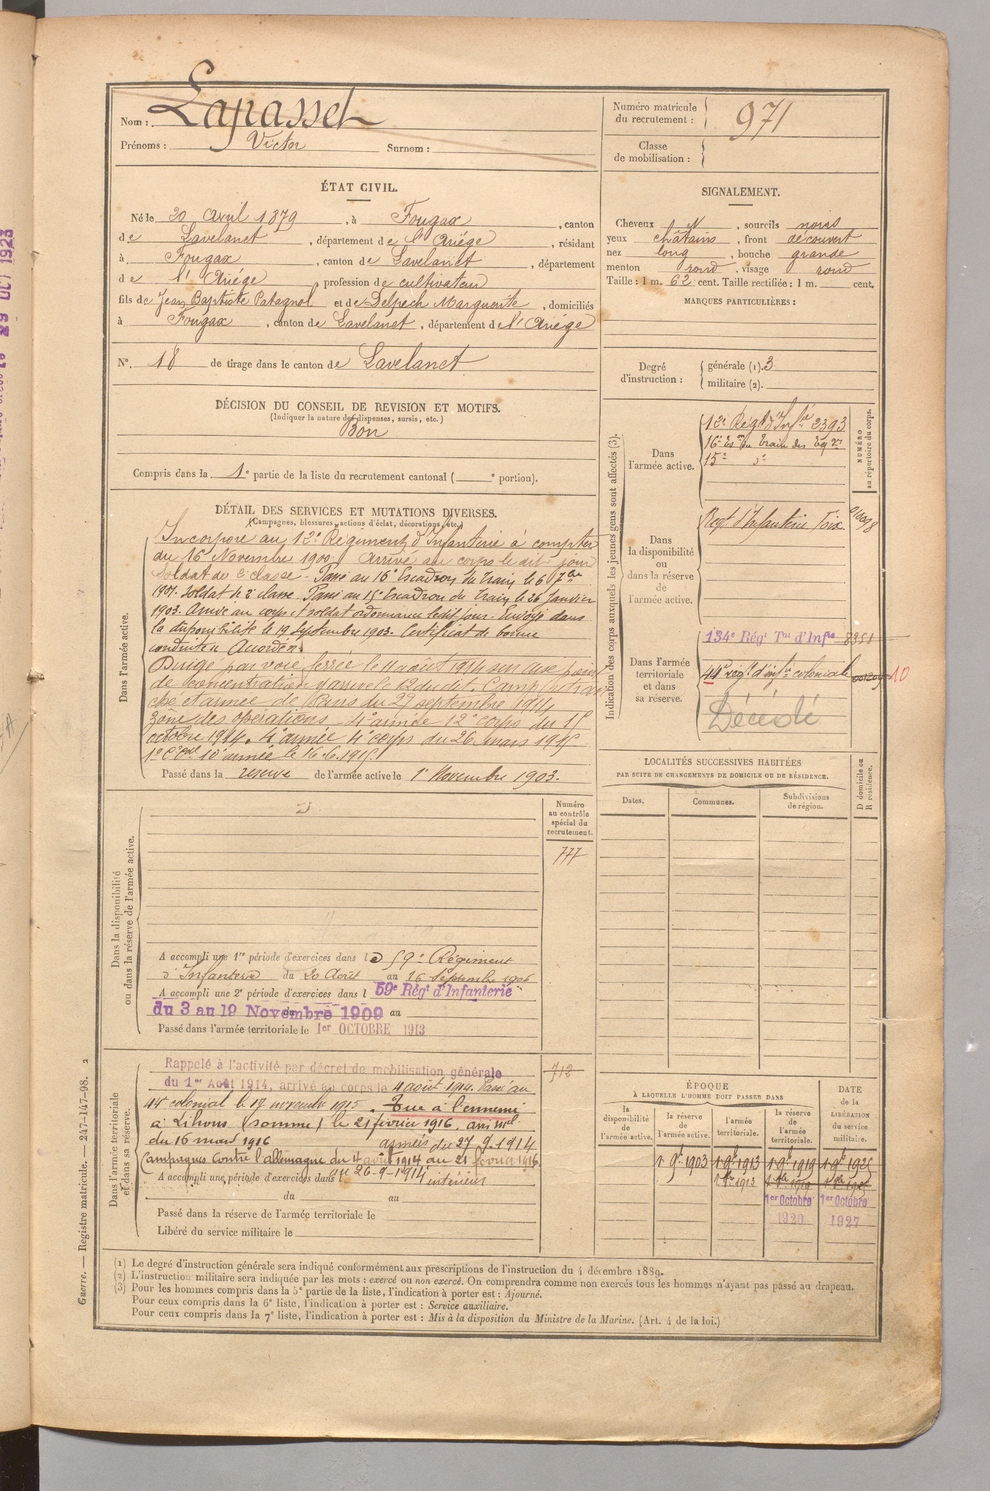 Nom : Lapasset
Prénoms : Victor Surnom :
Numéro matricule du recrutement : 971
Classe de mobilisation :
ÉTAT CIVIL.
Né le 20 Avril 1879, à Fougax, canton
de Lavelanet, département de l'Ariége, résidant
à Fougax, canton de Lavelanet, département
de l'Ariége, profession de cultivateur
fils de Jean Baptiste Patagnol et de Delpech Marguerite, domiciliés
à Fougax, canton de Lavelanet, département de l'Ariége
N°. 18 de tirage dans le canton de Lavelanet
SIGNALEMENT.
Cheveux N, sourcils noirs
yeux châtains, front découvert
nez long, bouche grande
menton rond, visage rond
Taille : 1 m. 62 cent. Taille rectifiée : 1 m. cent.
MARQUES PARTICULIÈRES :
Degré d'instruction : générale (1). 3
militaire (2).
DÉCISION DU CONSEIL DE REVISION ET MOTIFS.
(Indiquer la nature des dispenses, sursis, etc.)
Bon
Compris dans la 1e partie de la liste du recrutement cantonal ( e portion).
DÉTAIL DES SERVICES ET MUTATIONS DIVERSES.
(Campagnes, blessures, actions d'éclat, décorations, etc.)
Dans l'armée active.
Incorporé au 12e Régiment d'Infanterie à compter
du 16 Novembre 1900 Arrivé au corps le dit jour
soldat de 2e classe. Passé au 16e Escadron du Train le 6 7bre
1901. Soldat de 2e classe. Passé au 15e Escadron du Train le 26 Janvier
1903. Arrivé au corps et soldat ordonnance ledit jour. Envoyé dans
la disponibilité le 19 Septembre 1903. Certificat de bonne
conduite Accordé
Dirigé par voie ferrée le 11 août 1914 sur
de concentration Camp retran
ché d'armée de Paris du 27 septembre 1914
Zône des opérations 4e armée 12e corps du 1er
octobre 1914. 4e armée 4e corps du 26 mars 1915
10e armée le 16.6.1915
Passé dans la réserve de l'armée active le 1er Novembre 1903.
Indication des corps auxquels les jeunes gens sont affectés (3).
NUMÉRO au répertoire du corps.
Dans l'armée active.
12e Régt d'Infie 2393
16e Esn du Train des Eq
15e do
Dans la disponibilité ou dans la réserve de l'armée active.
Regt d'Infanterie Foix
Dans l'armée territoriale et dans sa réserve.
134e Régt Tal d'Infie 8351
44e regt d'infie coloniale
Décédé
LOCALITÉS SUCCESSIVES HABITÉES
PAR SUITE DE CHANGEMENTS DE DOMICILE OU DE RÉSIDENCE.
Dates. Communes. Subdivisions de région. D domicile ou R résidence.
Dans la disponibilité ou dans la réserve de l'armée active.
Numéro au contrôle spécial du recrutement.
777
A accompli une 1re période d'exercices dans le 59e Régiment
d'Infanterie du 20 Août au 16 Septembre 1906
A accompli une 2e période d'exercices dans l 59e Régt d'Infanterie
du 3 au 19 Novembre 1909 au
Passé dans l'armée territoriale le 1er OCTOBRE 1913
Dans l'armée territoriale et dans sa réserve.
712
Rappelé à l'activité par décret de mobilisation générale
du 1er Août 1914, arrivé au corps le 4 août 1914. Passé au
44e colonial le 17 novembre 1915. Tué à l'ennemi
à Lihons (Somme) le 21 février 1916. avis mel
du 16 mars 1916
armées du 27.9.1914
Campagnes contre l'allemagne du 4 août 1914 au 21 février 1916
A accompli une période d'exercices dans
au 26-9-1914 intérieur
du au
Passé dans la réserve de l'armée territoriale le
Libéré du service militaire le
ÉPOQUE
À LAQUELLE L'HOMME DOIT PASSER DANS
la disponibilité de l'armée active. la réserve de l'armée active. l'armée territoriale. la réserve de l'armée territoriale. DATE de la LIBÉRATION du service militaire.
1er Octobre 1920
1er Octobre 1927
(1) Le degré d'instruction générale sera indiqué conformément aux prescriptions de l'instruction du 4 décembre 1889.
(2) L'instruction militaire sera indiquée par les mots : exercé ou non exercé. On comprendra comme non exercés tous les hommes n'ayant pas passé au drapeau.
(3) Pour les hommes compris dans la 5e partie de la liste, l'indication à porter est : Ajourné.
Pour ceux compris dans la 6e liste, l'indication à porter est : Service auxiliaire.
Pour ceux compris dans la 7e liste, l'indication à porter est : Mis à la disposition du Ministre de la Marine. (Art. 4 de la loi.)
Guerre. — Registre matricule. — 247-147-98. 2
29 OCT 1923